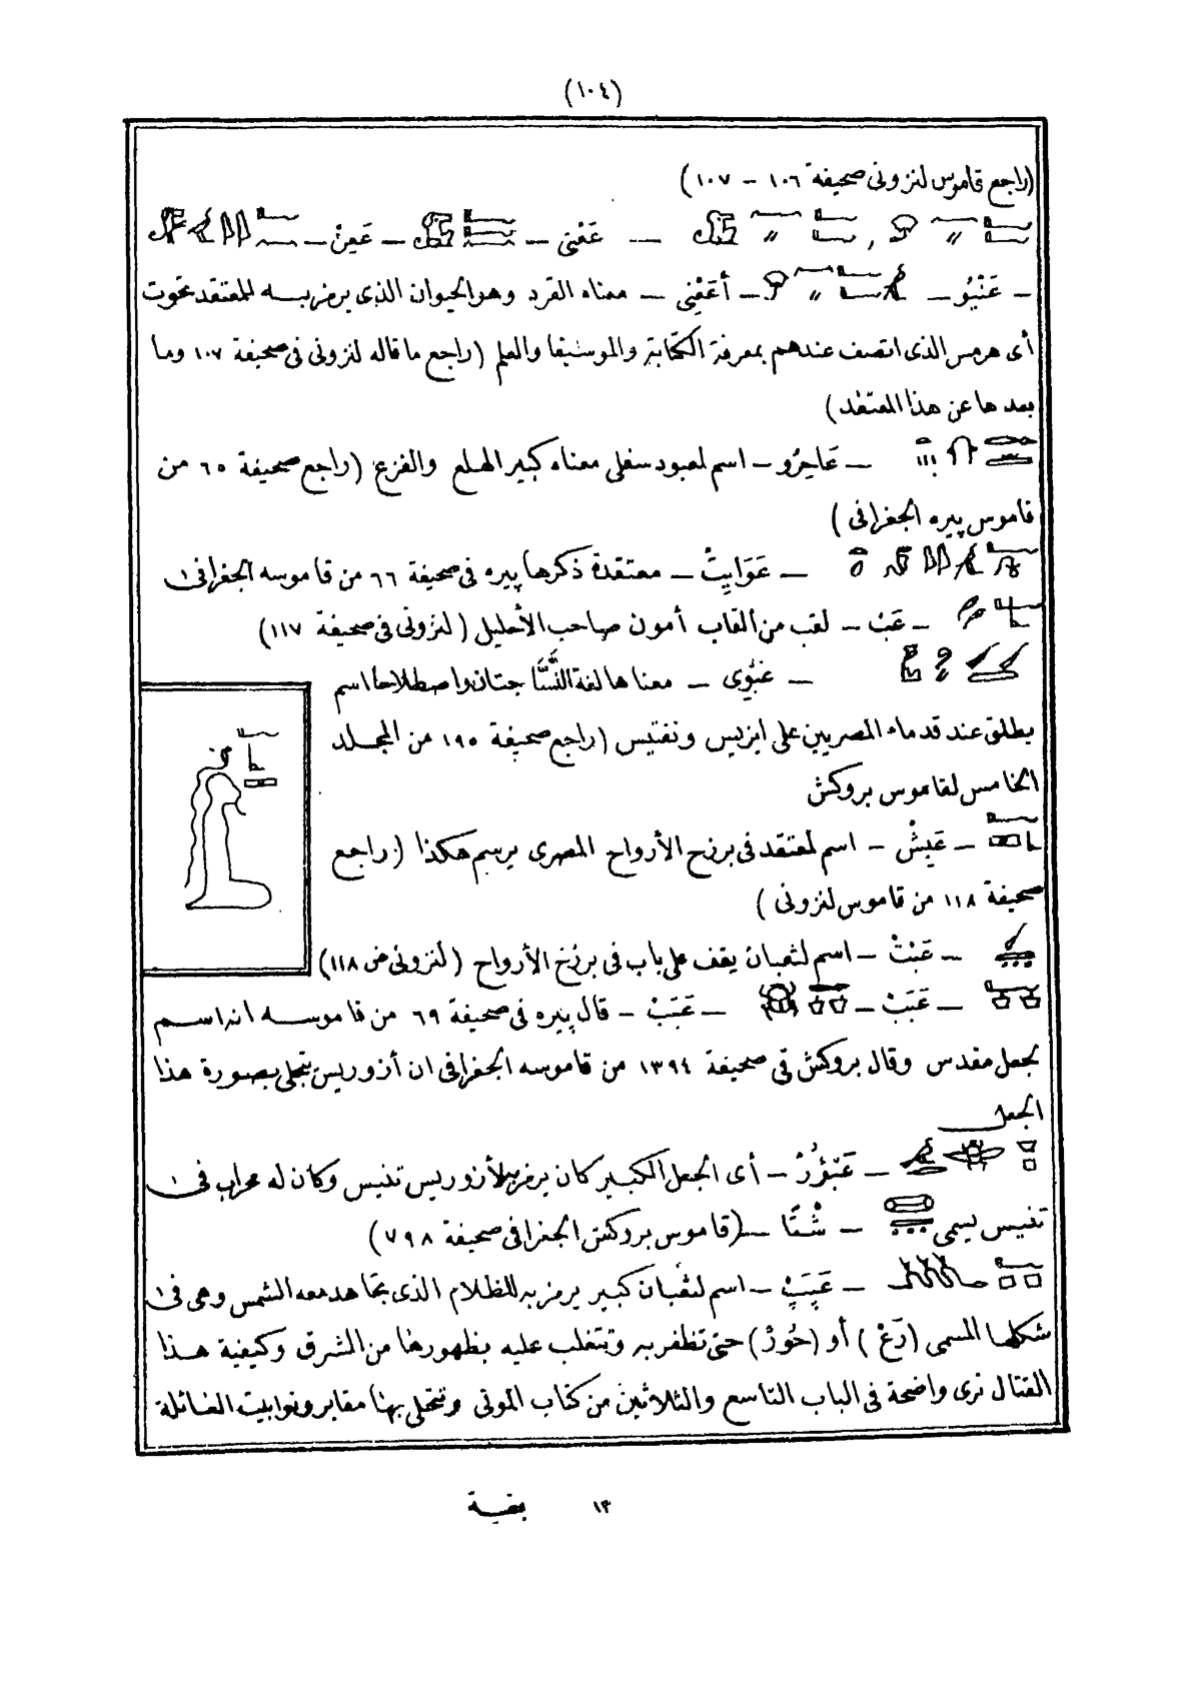 (١٠٤)
(راجع قاموس لنزونى صحيفة ١٠٦ - ١٠٧)
، — عَغْنى — — عَعِنْ —
— عَنْيُو — — أَعَغْنِى — معناه القرد وهو الحيوان الذى يرمز به للمعتقد تحوت
أى هرمس الذى اتصف عندهم بمعرفة الكتابة والموسيقا والعلم (راجع ما قاله لنزونى فى صحيفة ١٠٧ وما
بعدها عن هذا المعتقد)
— عَاحِرُو — اسم لمعبود سفلى معناه كبير الهلع والفزع (راجع صحيفة ٦٥ من
قاموس پيره الجغرافى)
— عَوَايِتْ — معتقدة ذكرها پيره فى صحيفة ٦٦ من قاموسه الجغرافى
— عَبْ — لقب من ألقاب أمون صاحب الأحليل (لنزونى فى صحيفة ١١٧)
— عَبُّوِى — معناها لغة اصطلاحا اسم
يطلق عند قدماء المصريين على ايزيس ونفتيس (راجع صحيفة ١٩٥ من المجلد
الخامس لقاموس بروكش
— عَبِشْ — اسم لمعتقد فى برزح الأرواح المصرى يرسم هكذا (راجع
صحيفة ١١٨ من قاموس لنزونى)
— عَبْتْ — اسم لثعبان يقف على باب فى برزخ الأرواح (لنزونى ص ١١٨)
— عَبَبْ — — عَبَبْ — قال پيره فى صحيفة ٦٩ من قاموسه انه اسم
لجعل مقدس وقال بروكش فى صحيفة ١٣٩٤ من قاموسه الجغرافى ان أزوريس يتجلى بصورة هذا
الجعل
— عَبْؤُرْ — أى الجعل الكبير كان يرمز به لأزوريس تنيس وكان له محراب فى
تنيس يسمى — شْتَا — (قاموس بروكش الجغرافى صحيفة ٧٩٨)
— عَپِپْ — اسم لثعبان كبير يرمز به للظلام الذى تجاهد معه الشمس وهى فى
شكلها المسمى (رَعْ) أو (حُورْ) حتى تظفر به وتتغلب عليه بظهورها من الشرق وكيفية هذا
القتال ترى واضحة فى الباب التاسع والثلاثين من كتاب الموتى وتتحلى بها مقابر وتوابيت العائلة
١٣ بقية